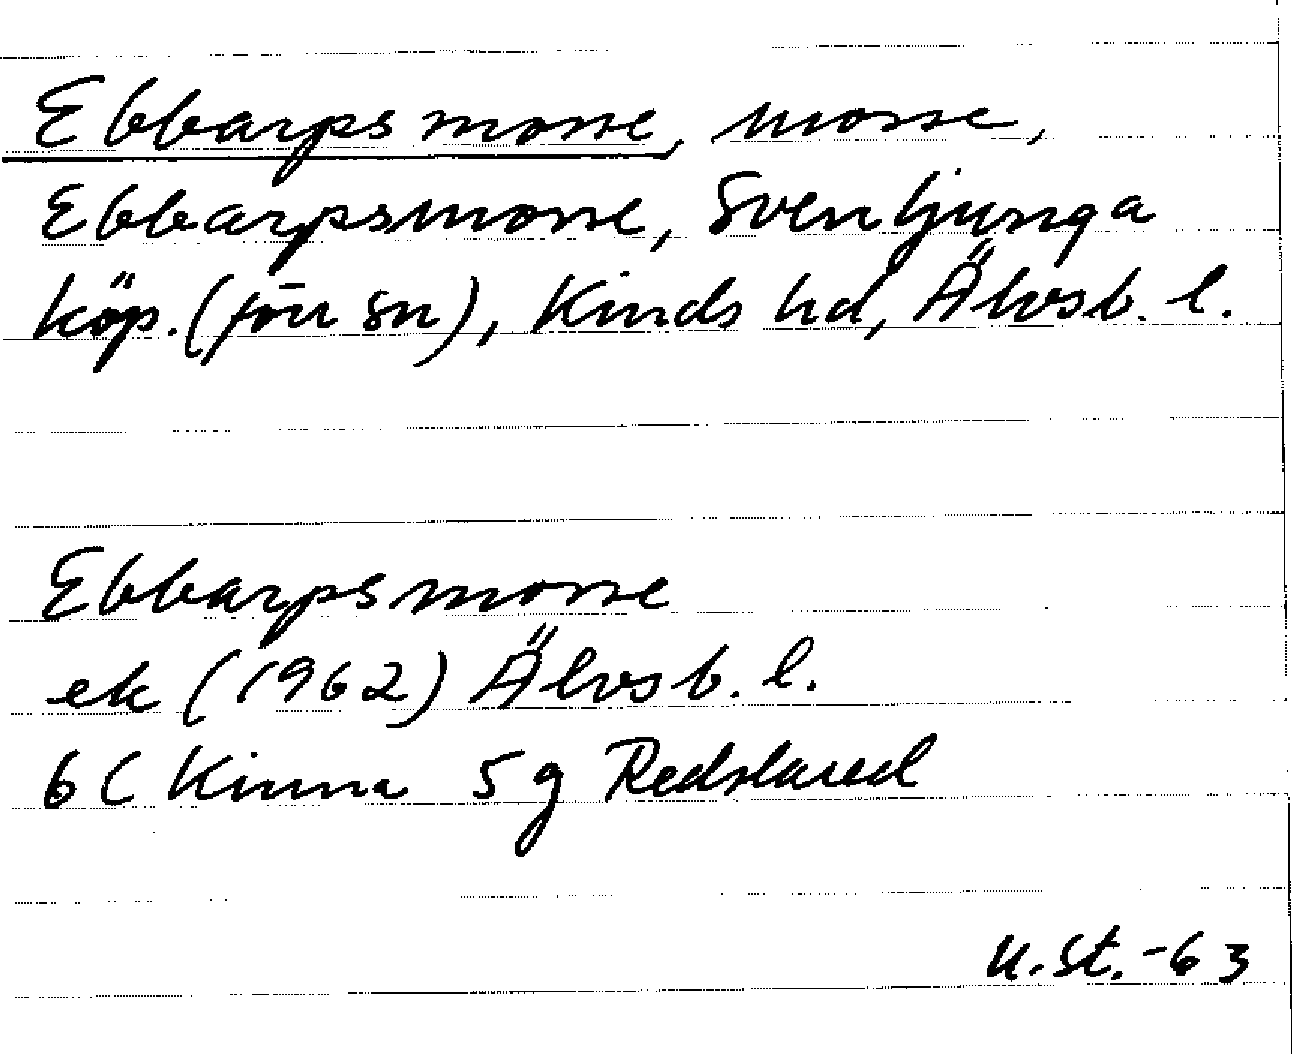 Ebbarps mosse, mosse,
Ebbarpsmosse, Svenljunga
köp. (förr sn), Kinds hd, Älvsb. l.
Ebbarpsmosse
ek (1962) Älvsb. l.
6 C Kinna 5 g Redslared
U. St. -63